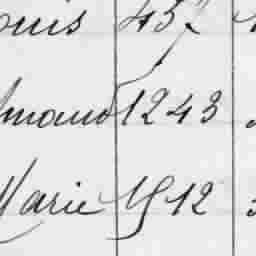 ouis 457
Amand 1243
Marie 1512